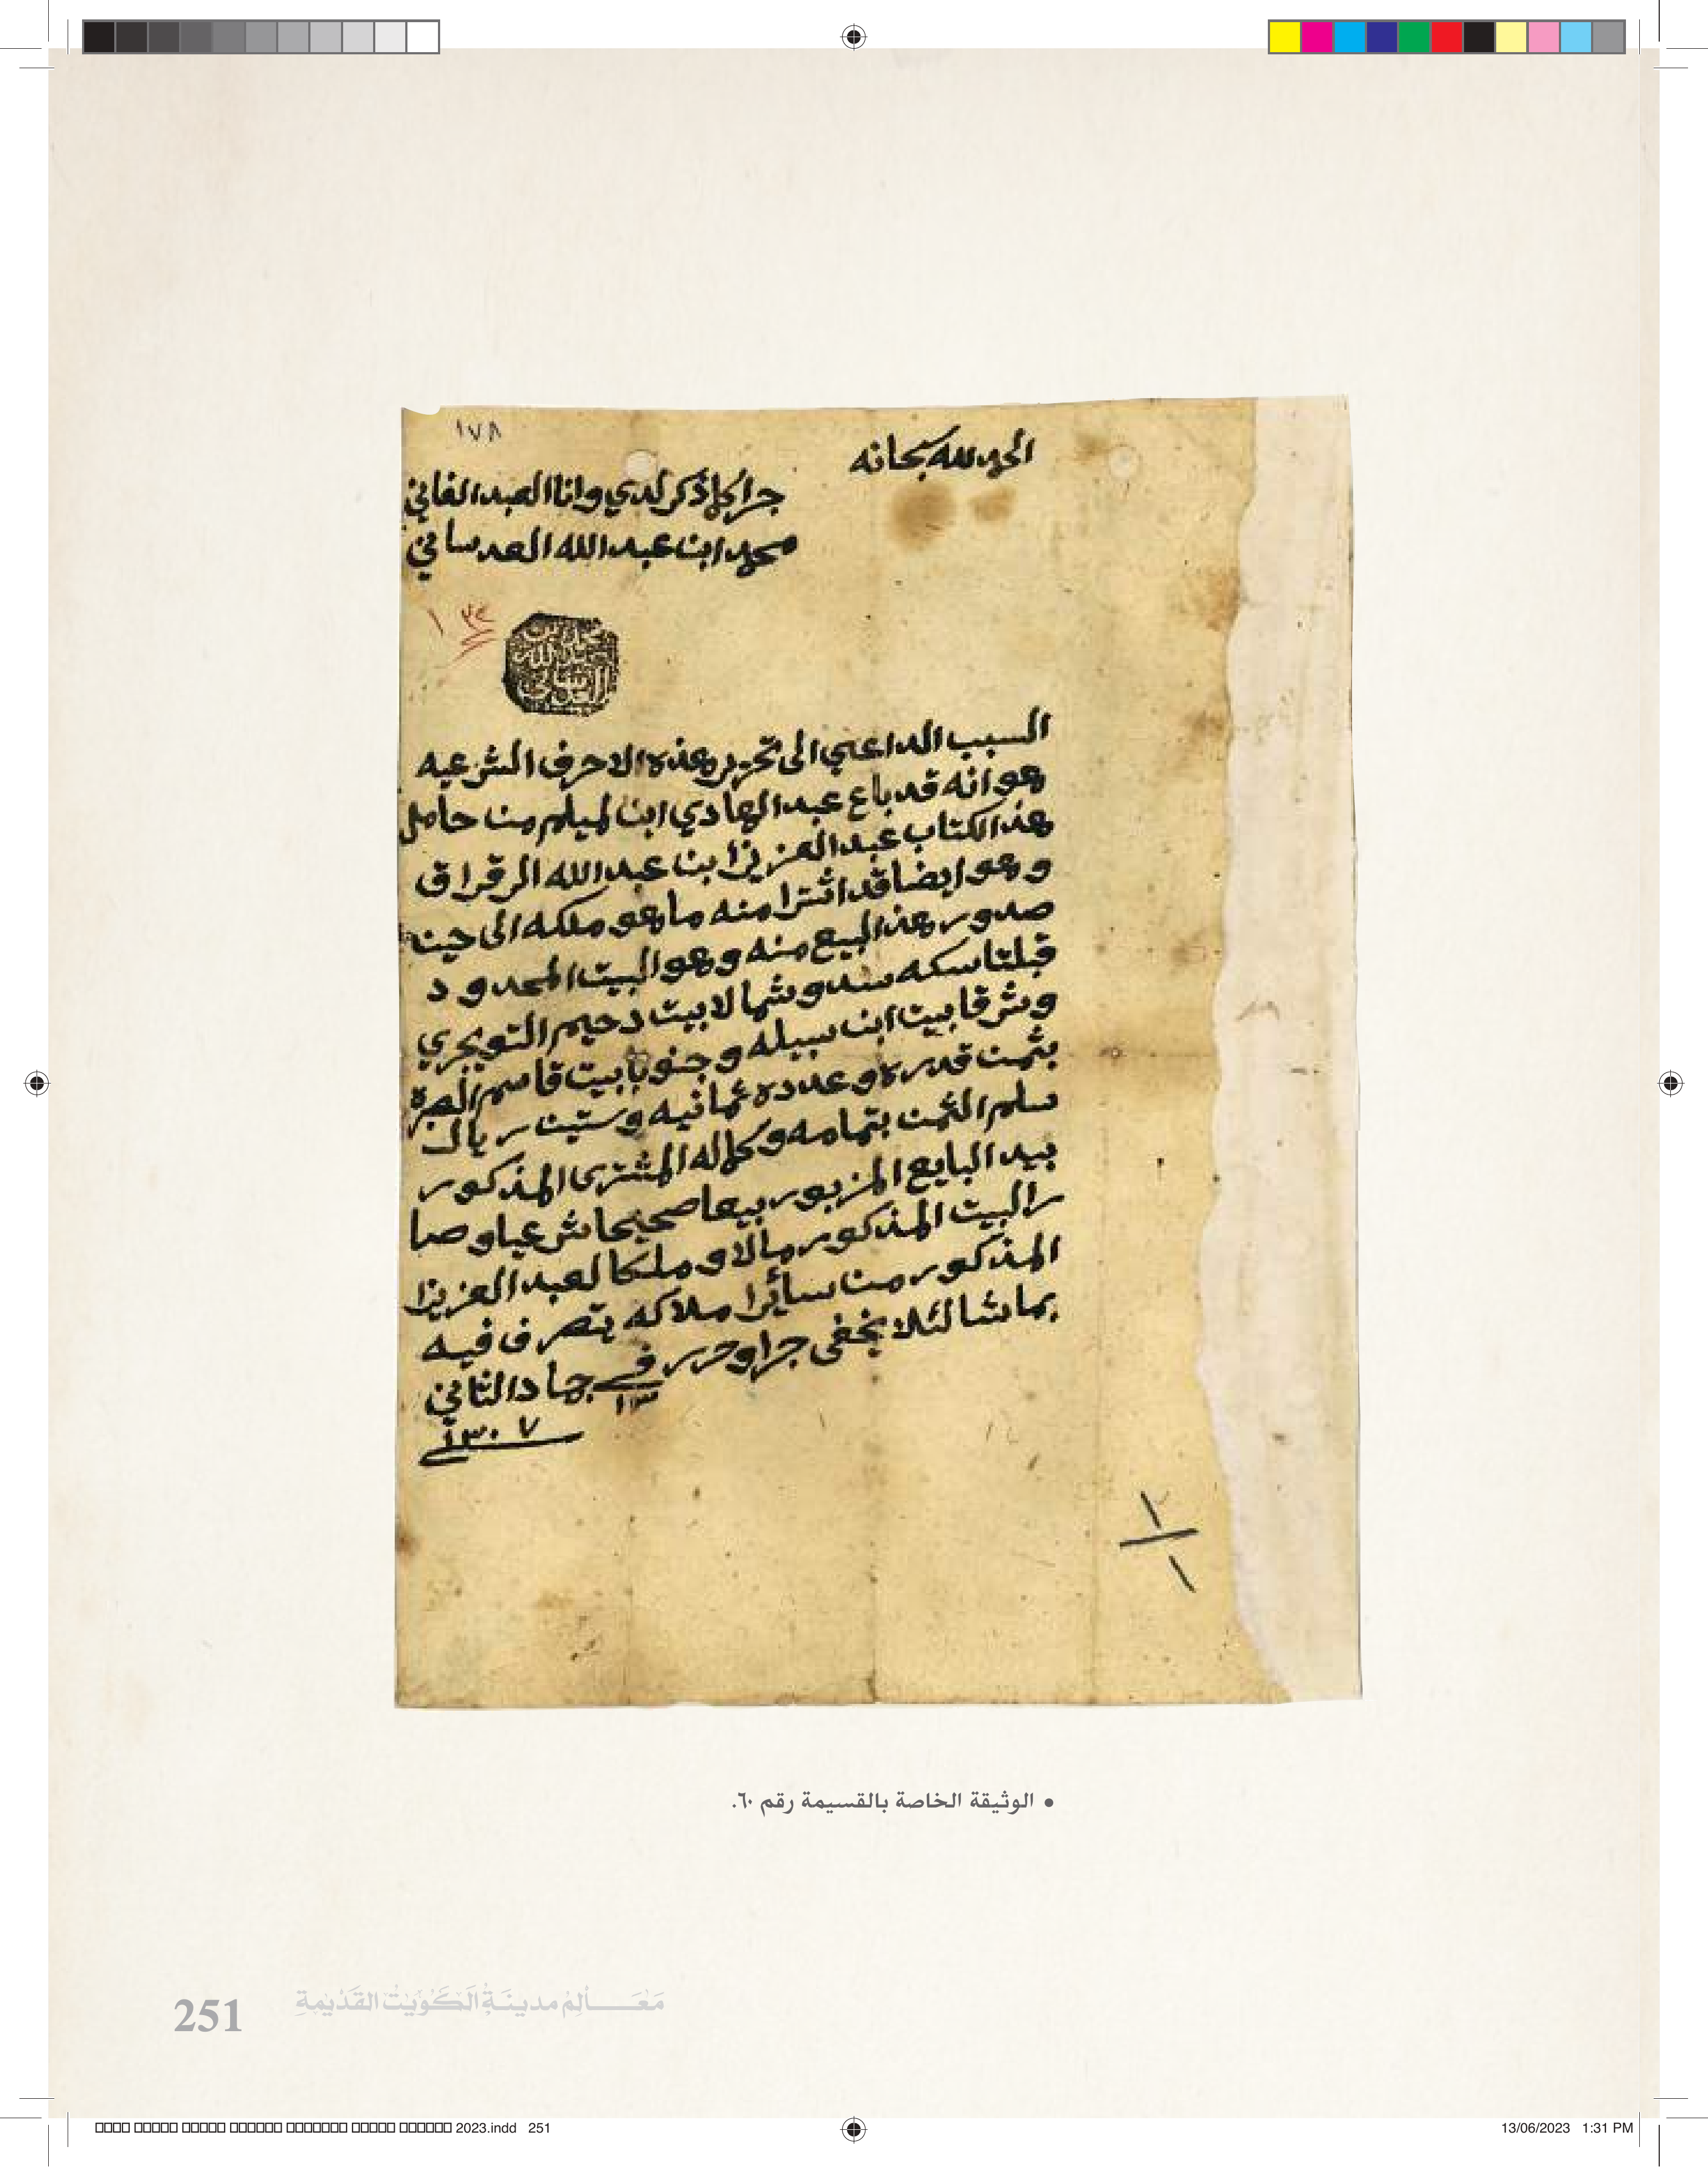 ١٧٨
الحمد لله سبحانه
جرا كما ذكر لدي وانا العبد الفاني
محمد ابن عبد الله العدساني
السبب الداعي الى تحرير هذه الاحرف الشرعيه
هو انه قد باع عبد الهادي ابن لميلم من حامل
هذا الكتاب عبد العزيز ابن عبد الله الرقراق
وهو ايضا قد اشترا منه ما هو ملكه الى حين
صدور هذ البيع منه وهو البيت المحدود
قبلتا سكه سد وشمالا بيت دحيم التويجري
وشرقا بيت ابن سبيله وجنوبا بيت قاسم
بثمن قدره وعدده ثمانيه وستين ريال
سلم الثمن بتمامه وكماله المشترى المذكور
بيد البايع المزبور بيعا صحيحا شرعيا وصا
ر البيت المذكور مالا وملكا لعبد العزيز
المذكور من سائر املاكه يتصرف فيه
بما شا لئلا يخفى جرا وحرر في ١٣ جماد الثاني
١٣٠٧
١
١
• الوثيقة الخاصة بالقسيمة رقم ٦٠.
251 مَعَالِم مدينَة الكُوَيْت القَدِيْمَة
2023.indd 251 13/06/2023 1:31 PM